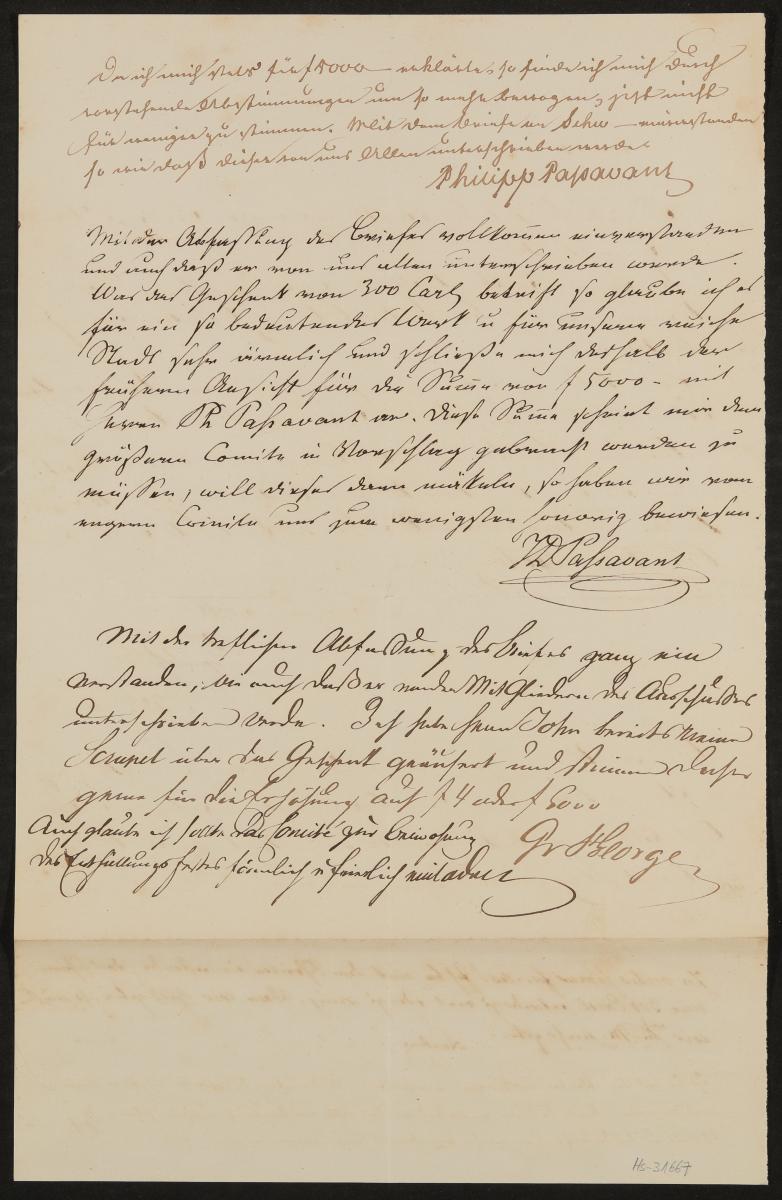 Da ich mich stets für f 5000 – erklärte, so finde ich mich durch
vorstehende Abstimmungen um so mehr bewogen, jetzt nicht
für weniger zu stimmen. Mit dem Briefe an Schw – einverstanden
so wie daß dieser von uns Allen unterschrieben werde.
Philipp Passavant
Mit der Abfassung des Briefes vollkommen einverstanden
und auch daß er von uns allen unterschrieben werde.
Was das Geschenk von 300 Carl betrift so glaube ich es
für ein so bedeutendes Werk u für unsere reiche
Stadt sehr ärmlich und schließe mich deshalb der
früheren Ansicht für die Summe von f 5000 – mit
Herrn Ph Passavant an. Diese Summe scheint mir dem
größeren Comite in Vorschlag gebracht werden zu
müssen, will dieses dann mäkeln, so haben wir vom
engern Comite uns zum wenigsten honorig bewiesen.
JD Passavant
Mit der treflichen Abfassung des Briefes ganz ein
verstanden, wie auch daß er von den Mitgliedern des Ausschußes
unterschrieben werde. Ich habe Herrn John bereits meine
Scrupel über das Geschenk geäußert und stimme daher
gerne für die Erhöhung auf f 4 oder f 5000
Auch glaube ich sollte das Comité zur Beiwohnung
des Enthüllungsfestes förmlich u feierlich einladen
Gr StGeorge
Hs-31667